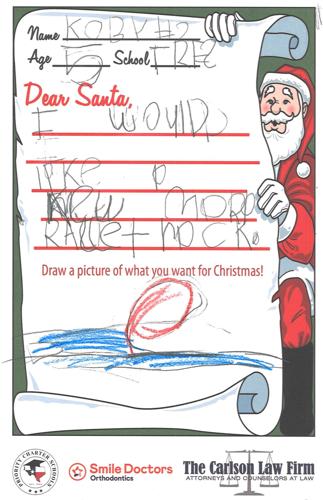 Name KOBY #2
Age 5 School TRLE
Dear Santa,
I WOUlD
lIKe
New MORO
Draw a picture of what you want for Christmas!
PRIORITY CHARTER SCHOOLS
Smile Doctors
Orthodontics
The Carlson Law Firm
ATTORNEYS AND COUNSELORS AT LAW